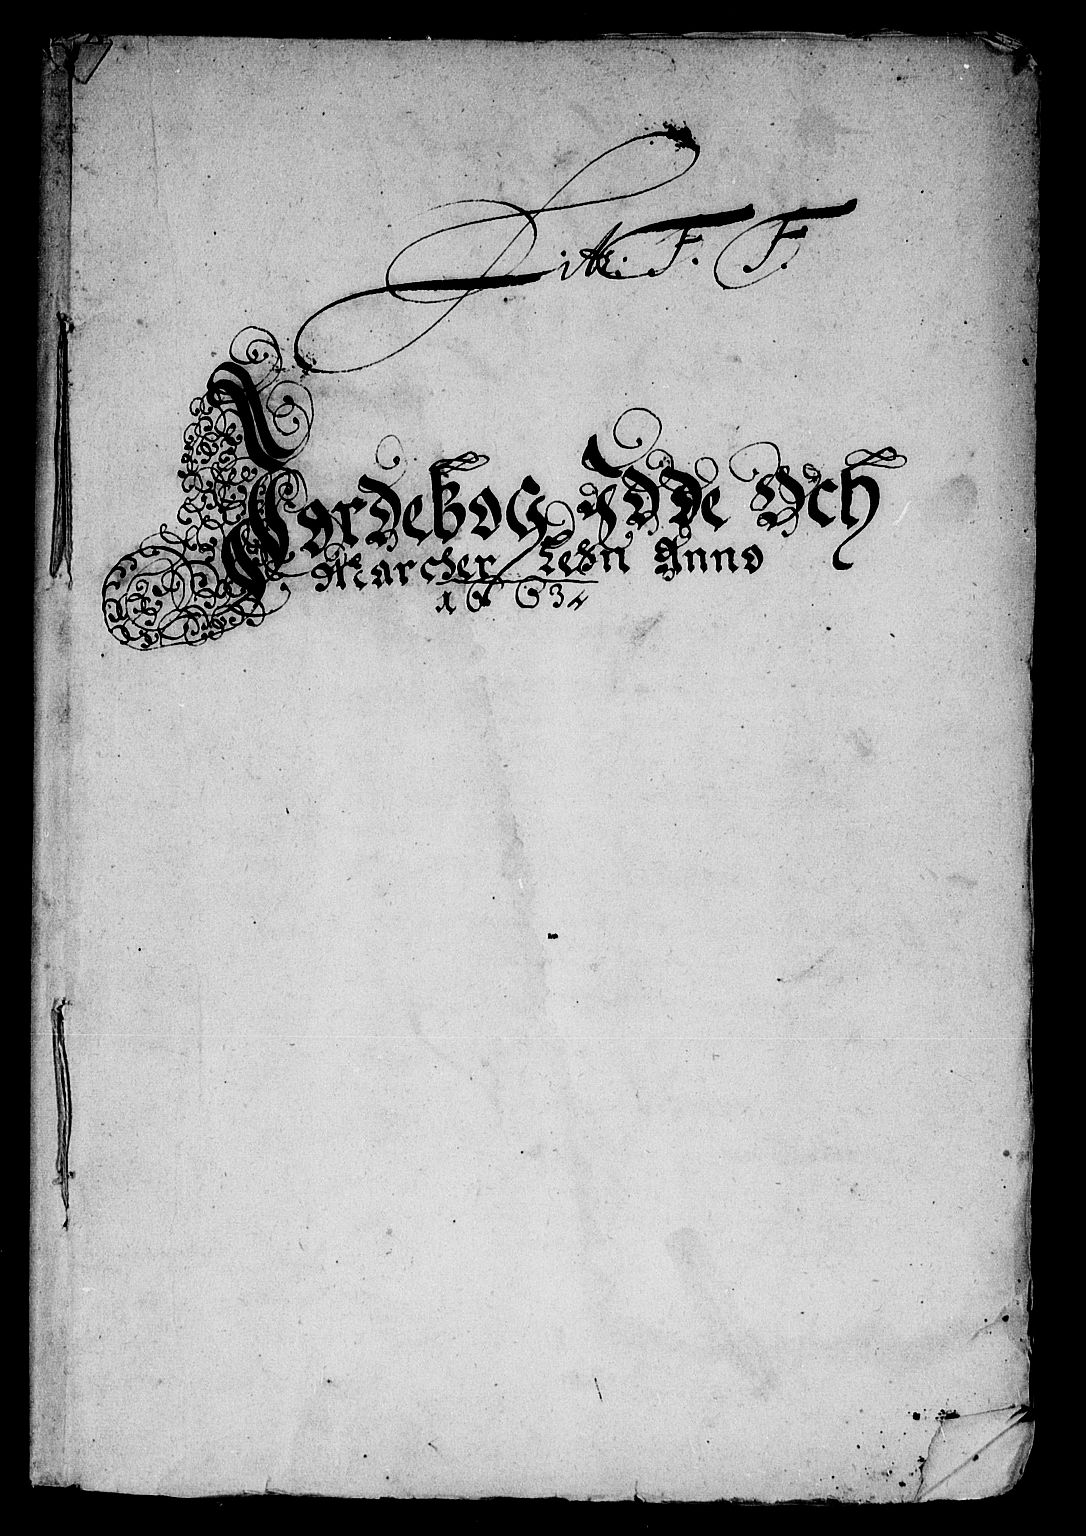 Litr. F. F.
Jordebog Ydde Och
Marcher Lehn Anno
1 6 6 3 4